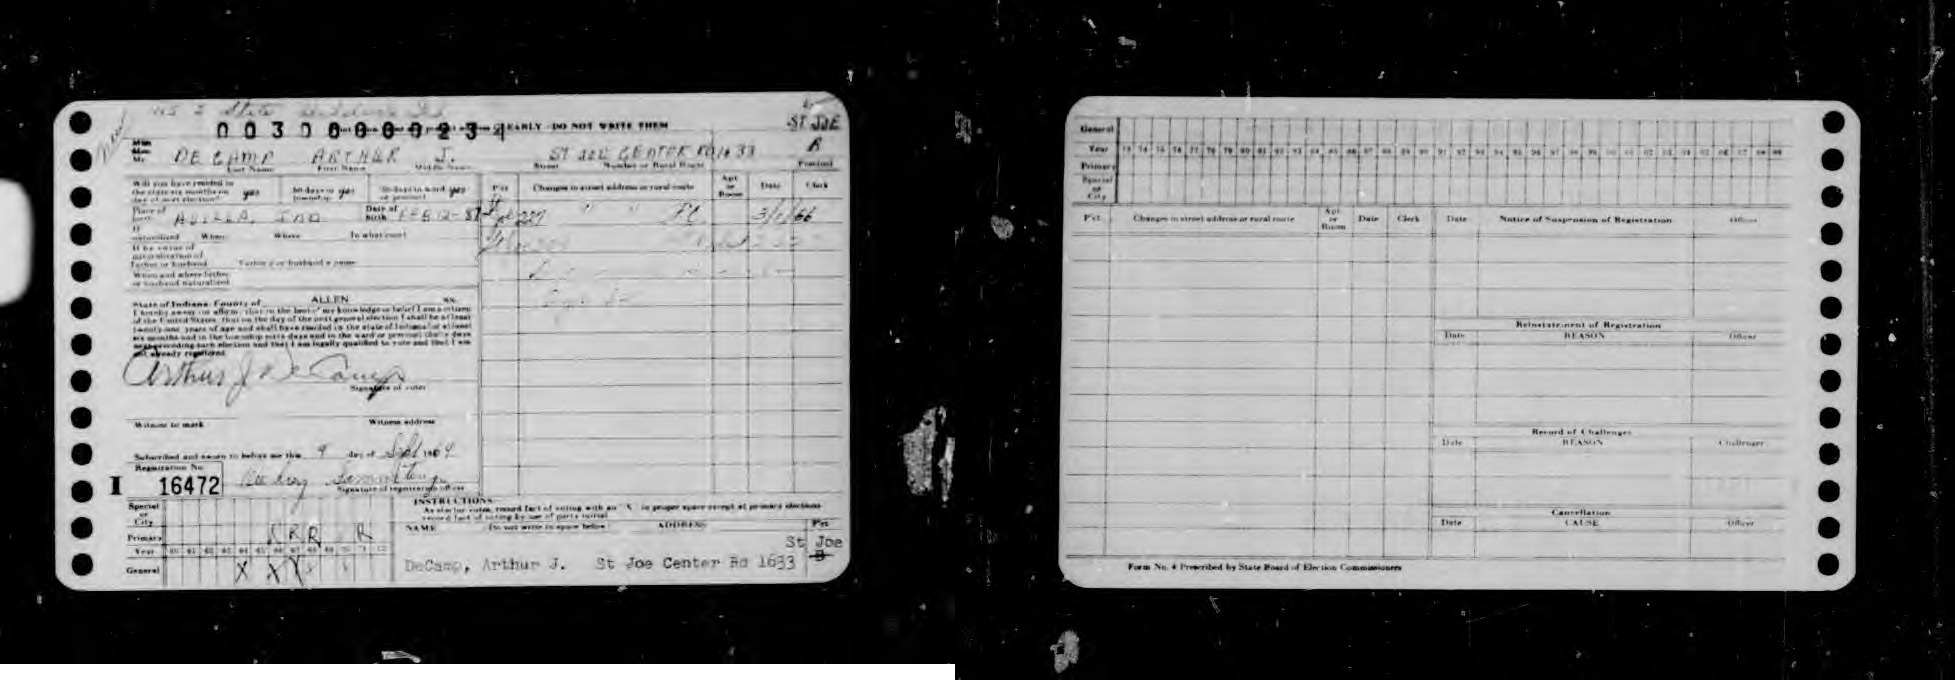 EARLY - DO NOT WRITE THEM
ST JOE
Miss
Mrs.
Mr. DE CAMP ARTHUR J. ST JOE CENTER RD 1633 B
Last Name First Name Middle Name Street Number or Rural Route Precinct
Will you have resided in
the state six months on
day of next election? yes 60 days in township yes 30 days in ward or precinct yes
Pct Changes in street address or rural route Apt or Room Date Clerk
Place of birth AVILLA, IND Date of birth FEB 12-87
" " P.C. 3/1/66
If naturalized When Where In what court
If by virtue of
naturalization of
father or husband Father's or husband's name
When and where father
or husband naturalized
State of Indiana, County of ALLEN ss.
I hereby swear (or affirm) that to the best of my knowledge or belief I am a citizen
of the United States, that on the day of the next general election I shall be at least
twenty-one years of age and shall have resided in the state of Indiana for at least
six months and in the township sixty days and in the ward or precinct thirty days
next preceding such election and that I am legally qualified to vote and that I am
not already registered
Arthur J. DeCamp
Signature of voter
Witness to mark Witness address
Subscribed and sworn to before me this 9 day of Sept 1964
Registration No.
I 16472
Signature of registration officer
INSTRUCTIONS
As elector votes, record fact of voting with an "X" in proper space except at primary elections
record fact of voting by use of party initial
Special
or
City
Primary R R R
Year 60 61 62 63 64 65 66 67 68 69 70 71 72
General X X X
NAME (Do not write in space below) ADDRESS Pct
St Joe
DeCamp, Arthur J. St Joe Center Rd 1633 B
General
Year 73 74 75 76 77 78 79 80 81 82 83 84 85 86 87 88 89 90 91 92 93 94 95 96 97 98 99 00 01 02 03 04 05 06 07 08 09
Primary
Special
or
City
Pct Changes in street address or rural route Apt or Room Date Clerk Date Notice of Suspension of Registration Officer
Reinstatement of Registration
Date REASON Officer
Record of Challenges
Date REASON Challenger
Cancellation
Date CAUSE Officer
Form No. 4 Prescribed by State Board of Election Commissioners